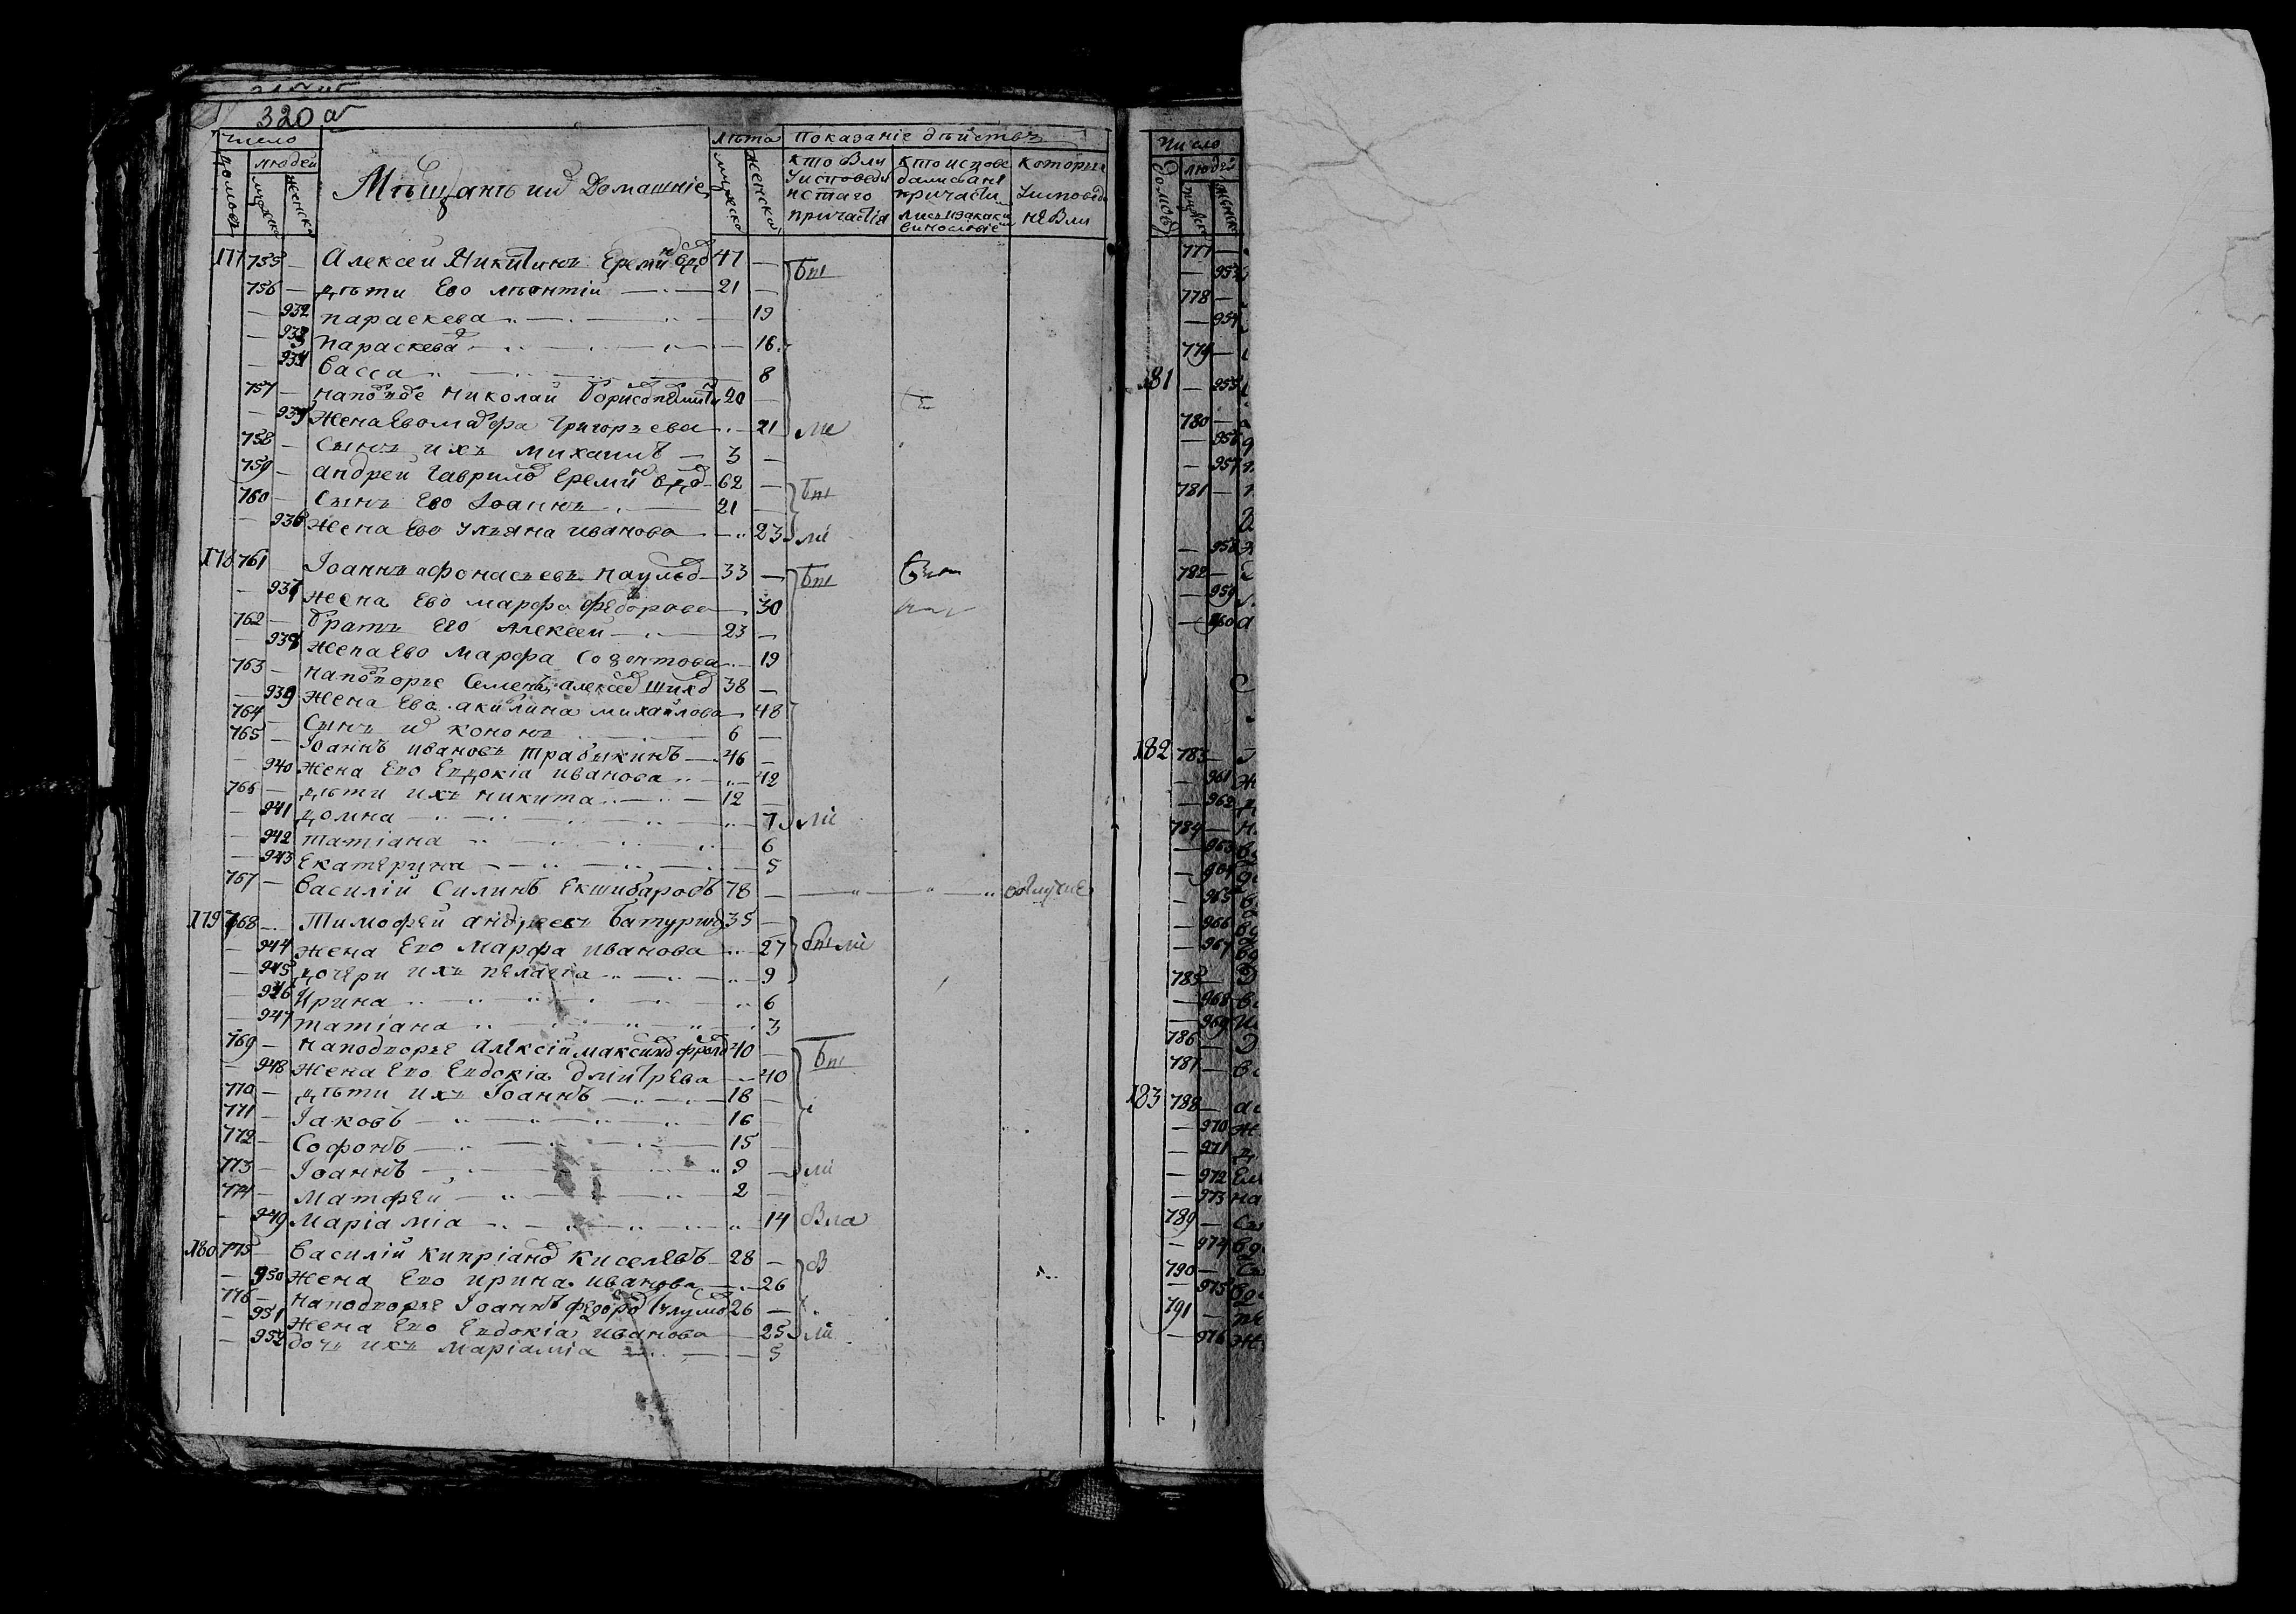 320 об
Число Лѣта Показаніе дѣйствъ
Домовъ людей мужска женска Мѣщанъ их Домашніе мужска женска
кто были у исповеди и стаго причастія
кто исповедались а не причастились и за какой виностіе
которые у исповеди не были
177 755 — Алексей Никитинъ Еремин вдо 47 — бы
756 — дѣти Ево Леонтій 21 —
— 932 параскева 19
— 933 параскева 16
— 934 васса 8
757 — на подво Николай Борисо 20 —
— 935 жена Ево Марфа Григорьева 21 ли
758 — Сынъ ихъ Михаилъ 3 —
759 — андрей Гаврило Еремин вдо 62 — бы
760 — Сынъ Ево Іоаннъ 21 —
— 936 жена Ево Ульяна иванова 23 ли
178 761 Іоаннъ афонасьевъ 33 — бы
— 937 жена Ево марфа федорова 30
762 — братъ Его Алексей 23 —
— 938 жена Ево Марфа Созонтова 19
763 — на подворье Семенъ алексее 38 —
— 939 жена Ево акилина михайлова 48
764 — Сынъ и кононъ 6 —
765 — Іоаннъ ивановъ Трабыкинъ 46 —
— 940 жена Ево Евдокіа иванова 42
766 — дѣти ихъ никита 12 —
— 941 домна 7 ли
— 942 татіана 6
— 943 Екатерина 5
767 — василій Силинъ Екшибаровъ 78 — — „ — „ — „ отлучке
179 768 — Тимофей андреевъ Батурин 35 —
— 944 жена Ево Марфа иванова 27 были
— 945 дочери ихъ пелагіа 9
— 946 Ирина 6
— 947 татіана 3
769 — на подворье Алексій максимо фроло 40 — бы
— 948 жена Ево Евдокіа дмитрева 40
770 — дѣти ихъ Іоаннъ 18 —
771 — Іаковъ 16 —
772 — Софонъ 15 —
773 — Іоаннъ 9 — ли
774 — Матфей 2 —
— 949 Маріаміа 14 была
180 775 — василій кипріано киселевъ 28 — б
— 950 жена Ево ирина иванова 26
776 — на подворье Іоаннъ федоро 26 —
— 951 жена Ево Евдокіа иванова 25 ли
— 952 дочь ихъ маріаміа 5
Число
Домовъ людей
777 —
— 953
778 —
— 954
779 —
181 — 955
780 —
— 956
— 957
781 —
— 958
782 —
— 959
— 960
182 783 —
— 961
— 962
784 —
— 963
— 964
— 965
— 966
— 967
785 —
— 968
— 969
786 —
787 —
183 788 —
— 970
— 971
— 972
— 973
789 —
— 974
790 —
— 975
791 —
— 976